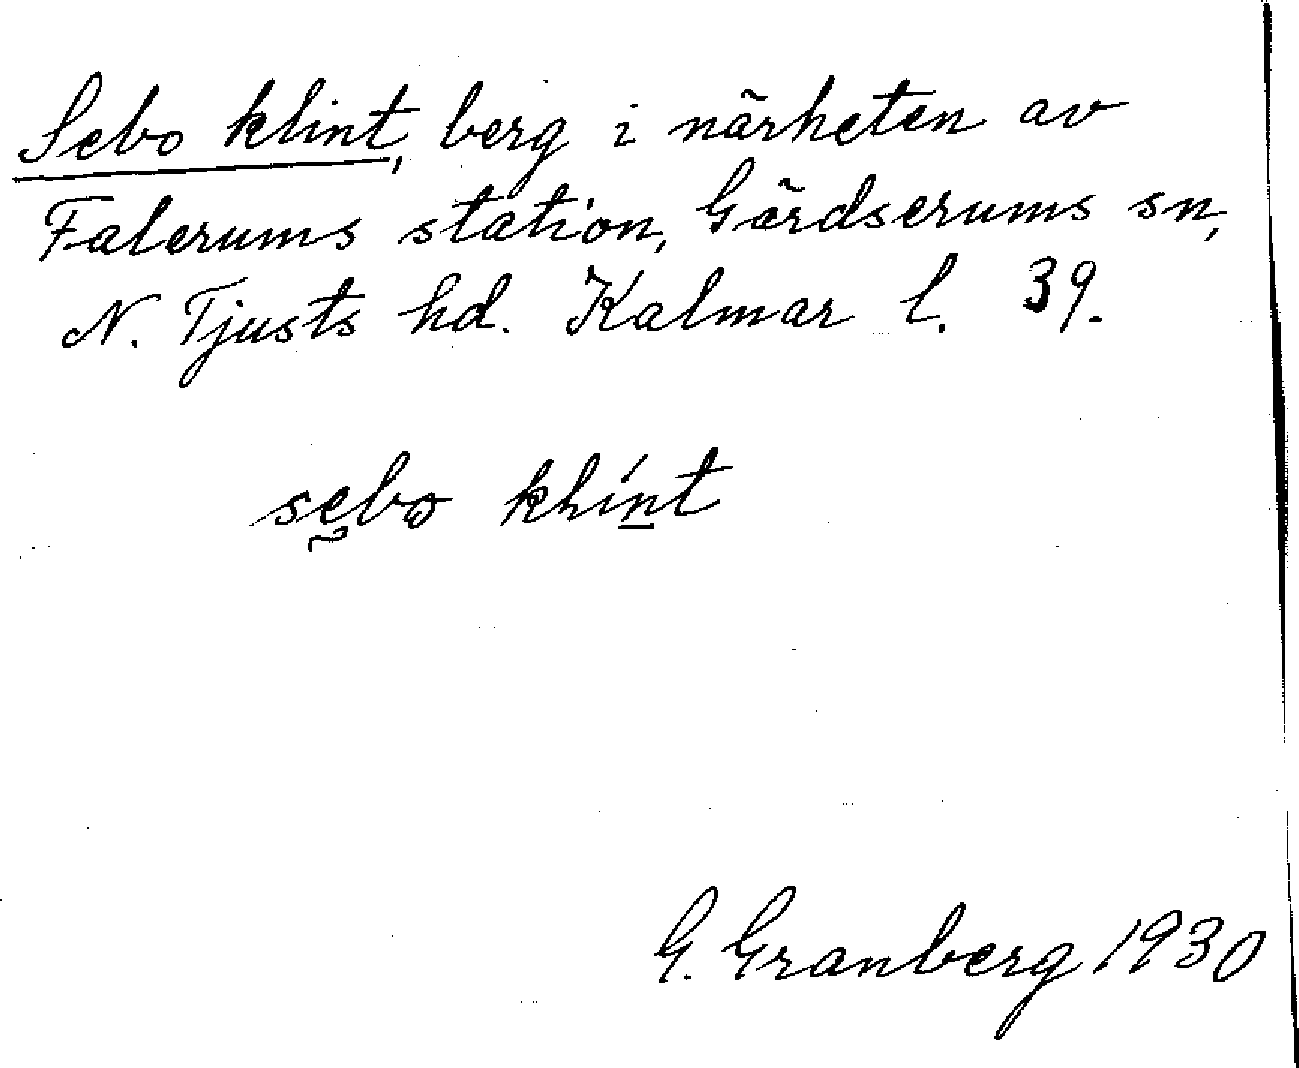 Sebo klint, berg i närheten av
Falerums station, Gärdserums sn,
N. Tjusts hd. Kalmar l. 39.
sebo klint
G. Granberg 1930